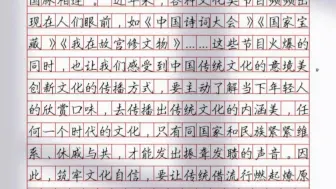 国脉相连。近年来，各种文化类节目频频出
现在人们眼前，如《中国诗词大会》《国家宝
藏》《我在故宫修文物》……这些节目火爆的
同时，也让我们感受到中国传统文化的意境美
创新文化的传播方式，要主动了解当下年轻人
的欣赏口味，去传播出传统文化的内涵美，任
何一个时代的文化，只有同国家和民族紧紧维
系、休戚与共，才能发出振聋发聩的声音。因
此，筑牢文化自信，要让传统借流行燃起燎原